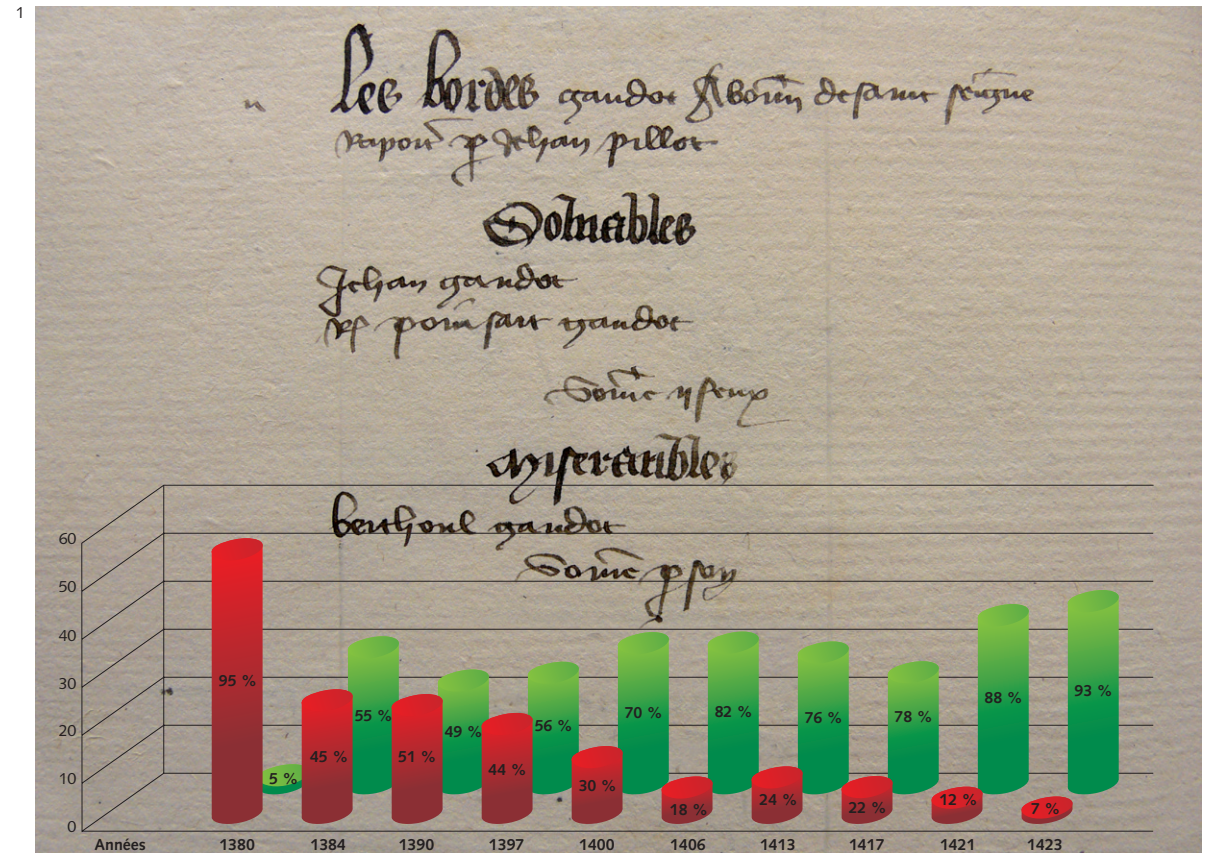 1
Les bordes gaudot Abonn de saint seigne
Raport p Jehan pillot
Solvables
Jehan gaudot
gaudot
Some ij feux
Miserables
berthoul gaudot
Some p soy
60
50
40
30
20
10
0
95 %
5 %
45 %
55 %
51 %
49 %
44 %
56 %
30 %
70 %
18 %
82 %
24 %
76 %
22 %
78 %
12 %
88 %
7 %
93 %
Années 1380 1384 1390 1397 1400 1406 1413 1417 1421 1423